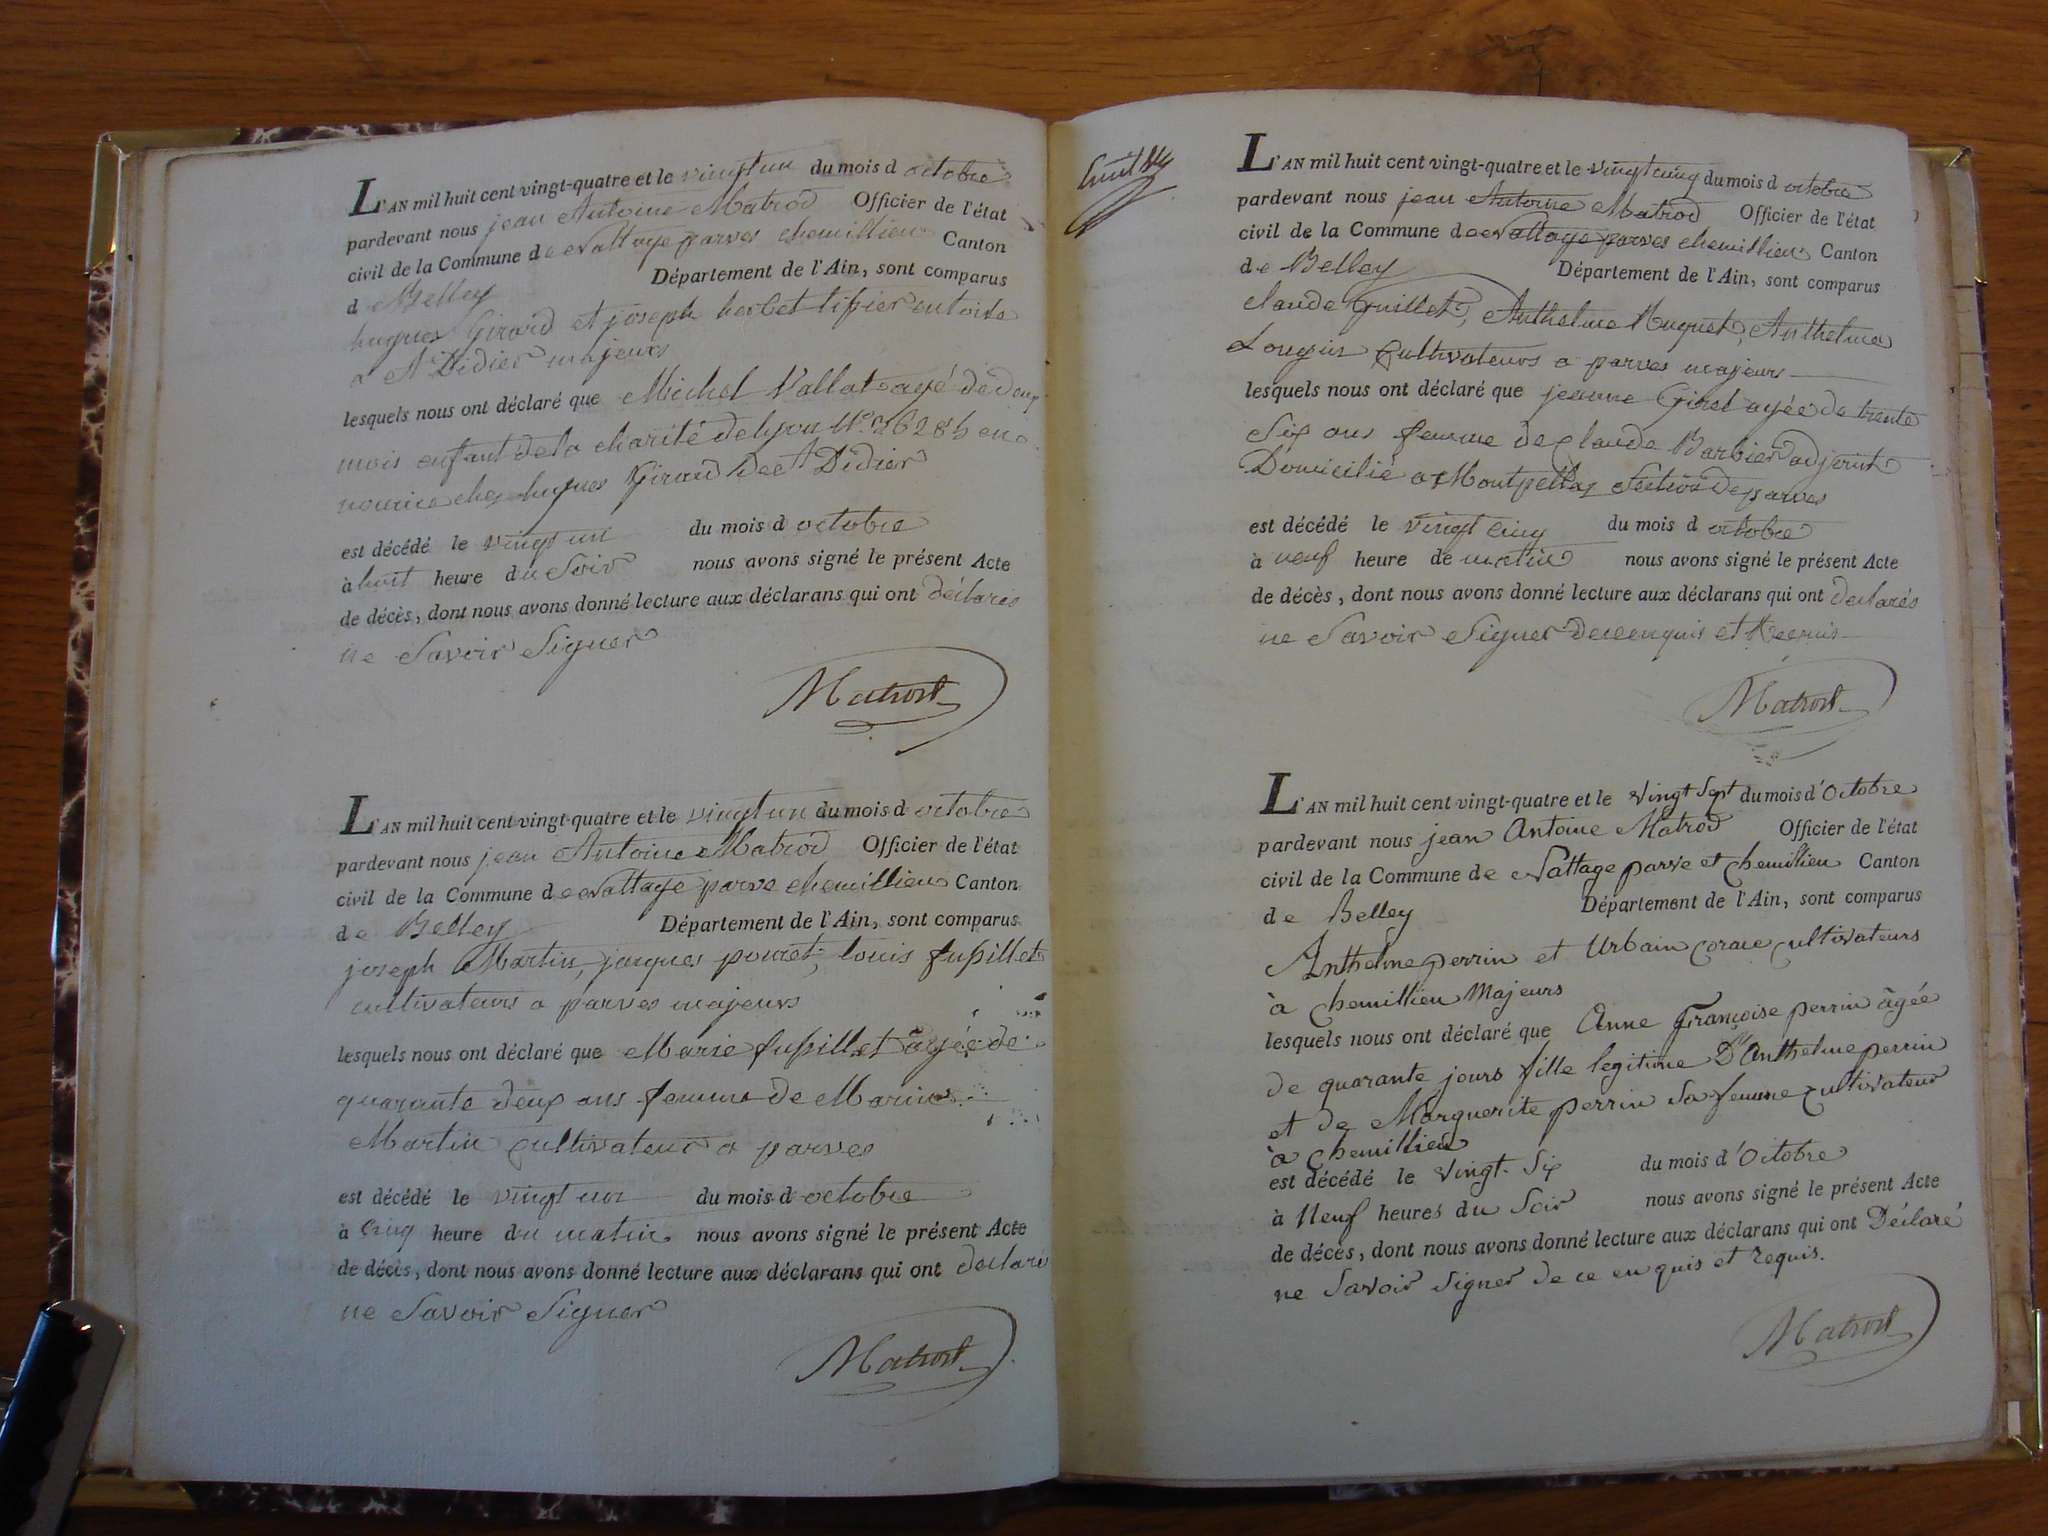 L'AN mil huit cent vingt-quatre et le vingt un du mois d octobre
pardevant nous jean Antoine Matrod Officier de l'état
civil de la Commune de Nattage parves chemillieu Canton
d Belley Département de l'Ain, sont comparus
hugues Girard et joseph herbet tissier en toile
a St Didier majeurs
lesquels nous ont déclaré que Michel Vallat agé de deux
mois enfant de la charité de lyon N° en
nourice chez hugues Girard de St Didier
est décédé le vingt un du mois d octobre
à huit heure du Soir nous avons signé le présent Acte
de décès, dont nous avons donné lecture aux déclarans qui ont déclarés
ne Savoir Signer
Matrod
L'AN mil huit cent vingt-quatre et le vingt un du mois d octobre
pardevant nous jean Antoine Matrod Officier de l'état
civil de la Commune de Nattage parve chemillieu Canton
de Belley Département de l'Ain, sont comparus
joseph Martin, jacques pouret, louis fusillet
cultivateurs a parves majeurs
lesquels nous ont déclaré que Marie fusillet agée de
quarante deux ans femme de Marin
Martin cultivateur a parves
est décédé le vingt un du mois d octobre
à cinq heure du matin nous avons signé le présent Acte
de décès, dont nous avons donné lecture aux déclarans qui ont declaré
ne Savoir Signer
Matrod
L'AN mil huit cent vingt-quatre et le vingt cinq du mois d octobre
pardevant nous jean Antoine Matrod Officier de l'état
civil de la Commune de Nattage parves chemillieu Canton
de Belley Département de l'Ain, sont comparus
claude Guillet, Anthelme Huguet, Anthelme
Longin Cultivateurs a parves majeurs
lesquels nous ont déclaré que jeanne Girel agée de trente
Six ans femme de claude Barbier adjoint
Domicilié a Montpellaz Section de parves
est décédé le vingt cinq du mois d octobre
à neuf heure de matin nous avons signé le présent Acte
de décès, dont nous avons donné lecture aux déclarans qui ont déclarés
ne Savoir Signer de ce enquis et Requis
Matrod
L'AN mil huit cent vingt-quatre et le vingt Sept du mois d'Octobre
pardevant nous jean Antoine Matrod Officier de l'état
civil de la Commune de Nattage parve et chemillieu Canton
de Belley Département de l'Ain, sont comparus
Anthelme perrin et Urbain corau cultivateurs
à chemillieu Majeurs
lesquels nous ont déclaré que Anne Françoise perrin âgée
de quarante jours fille legitime D'Anthelme perrin
et de Marguerite perrin Sa femme cultivateur
à chemillieu
est décédé le vingt-Six du mois d'Octobre
à Neuf heures du Soir nous avons signé le présent Acte
de décès, dont nous avons donné lecture aux déclarans qui ont Déclaré
ne Savoir Signer de ce enquis et requis.
Matrod